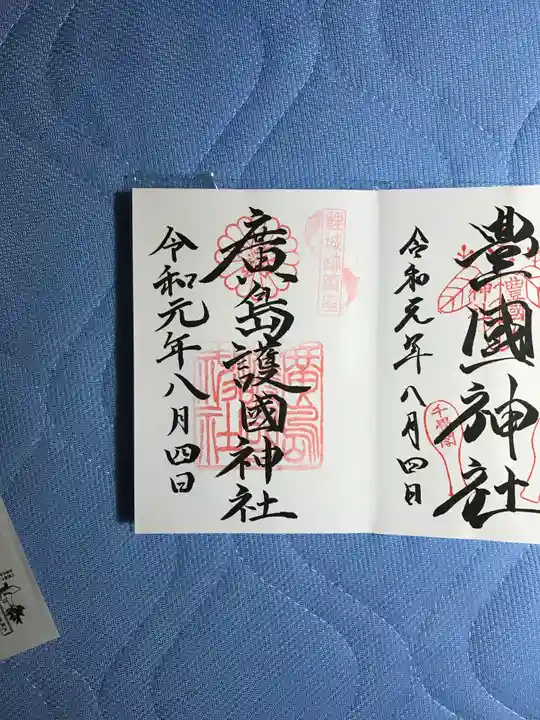 豊國神社
千畳閣
令和元年八月四日
鯉城跡鎮座
廣島護國神社
令和元年八月四日